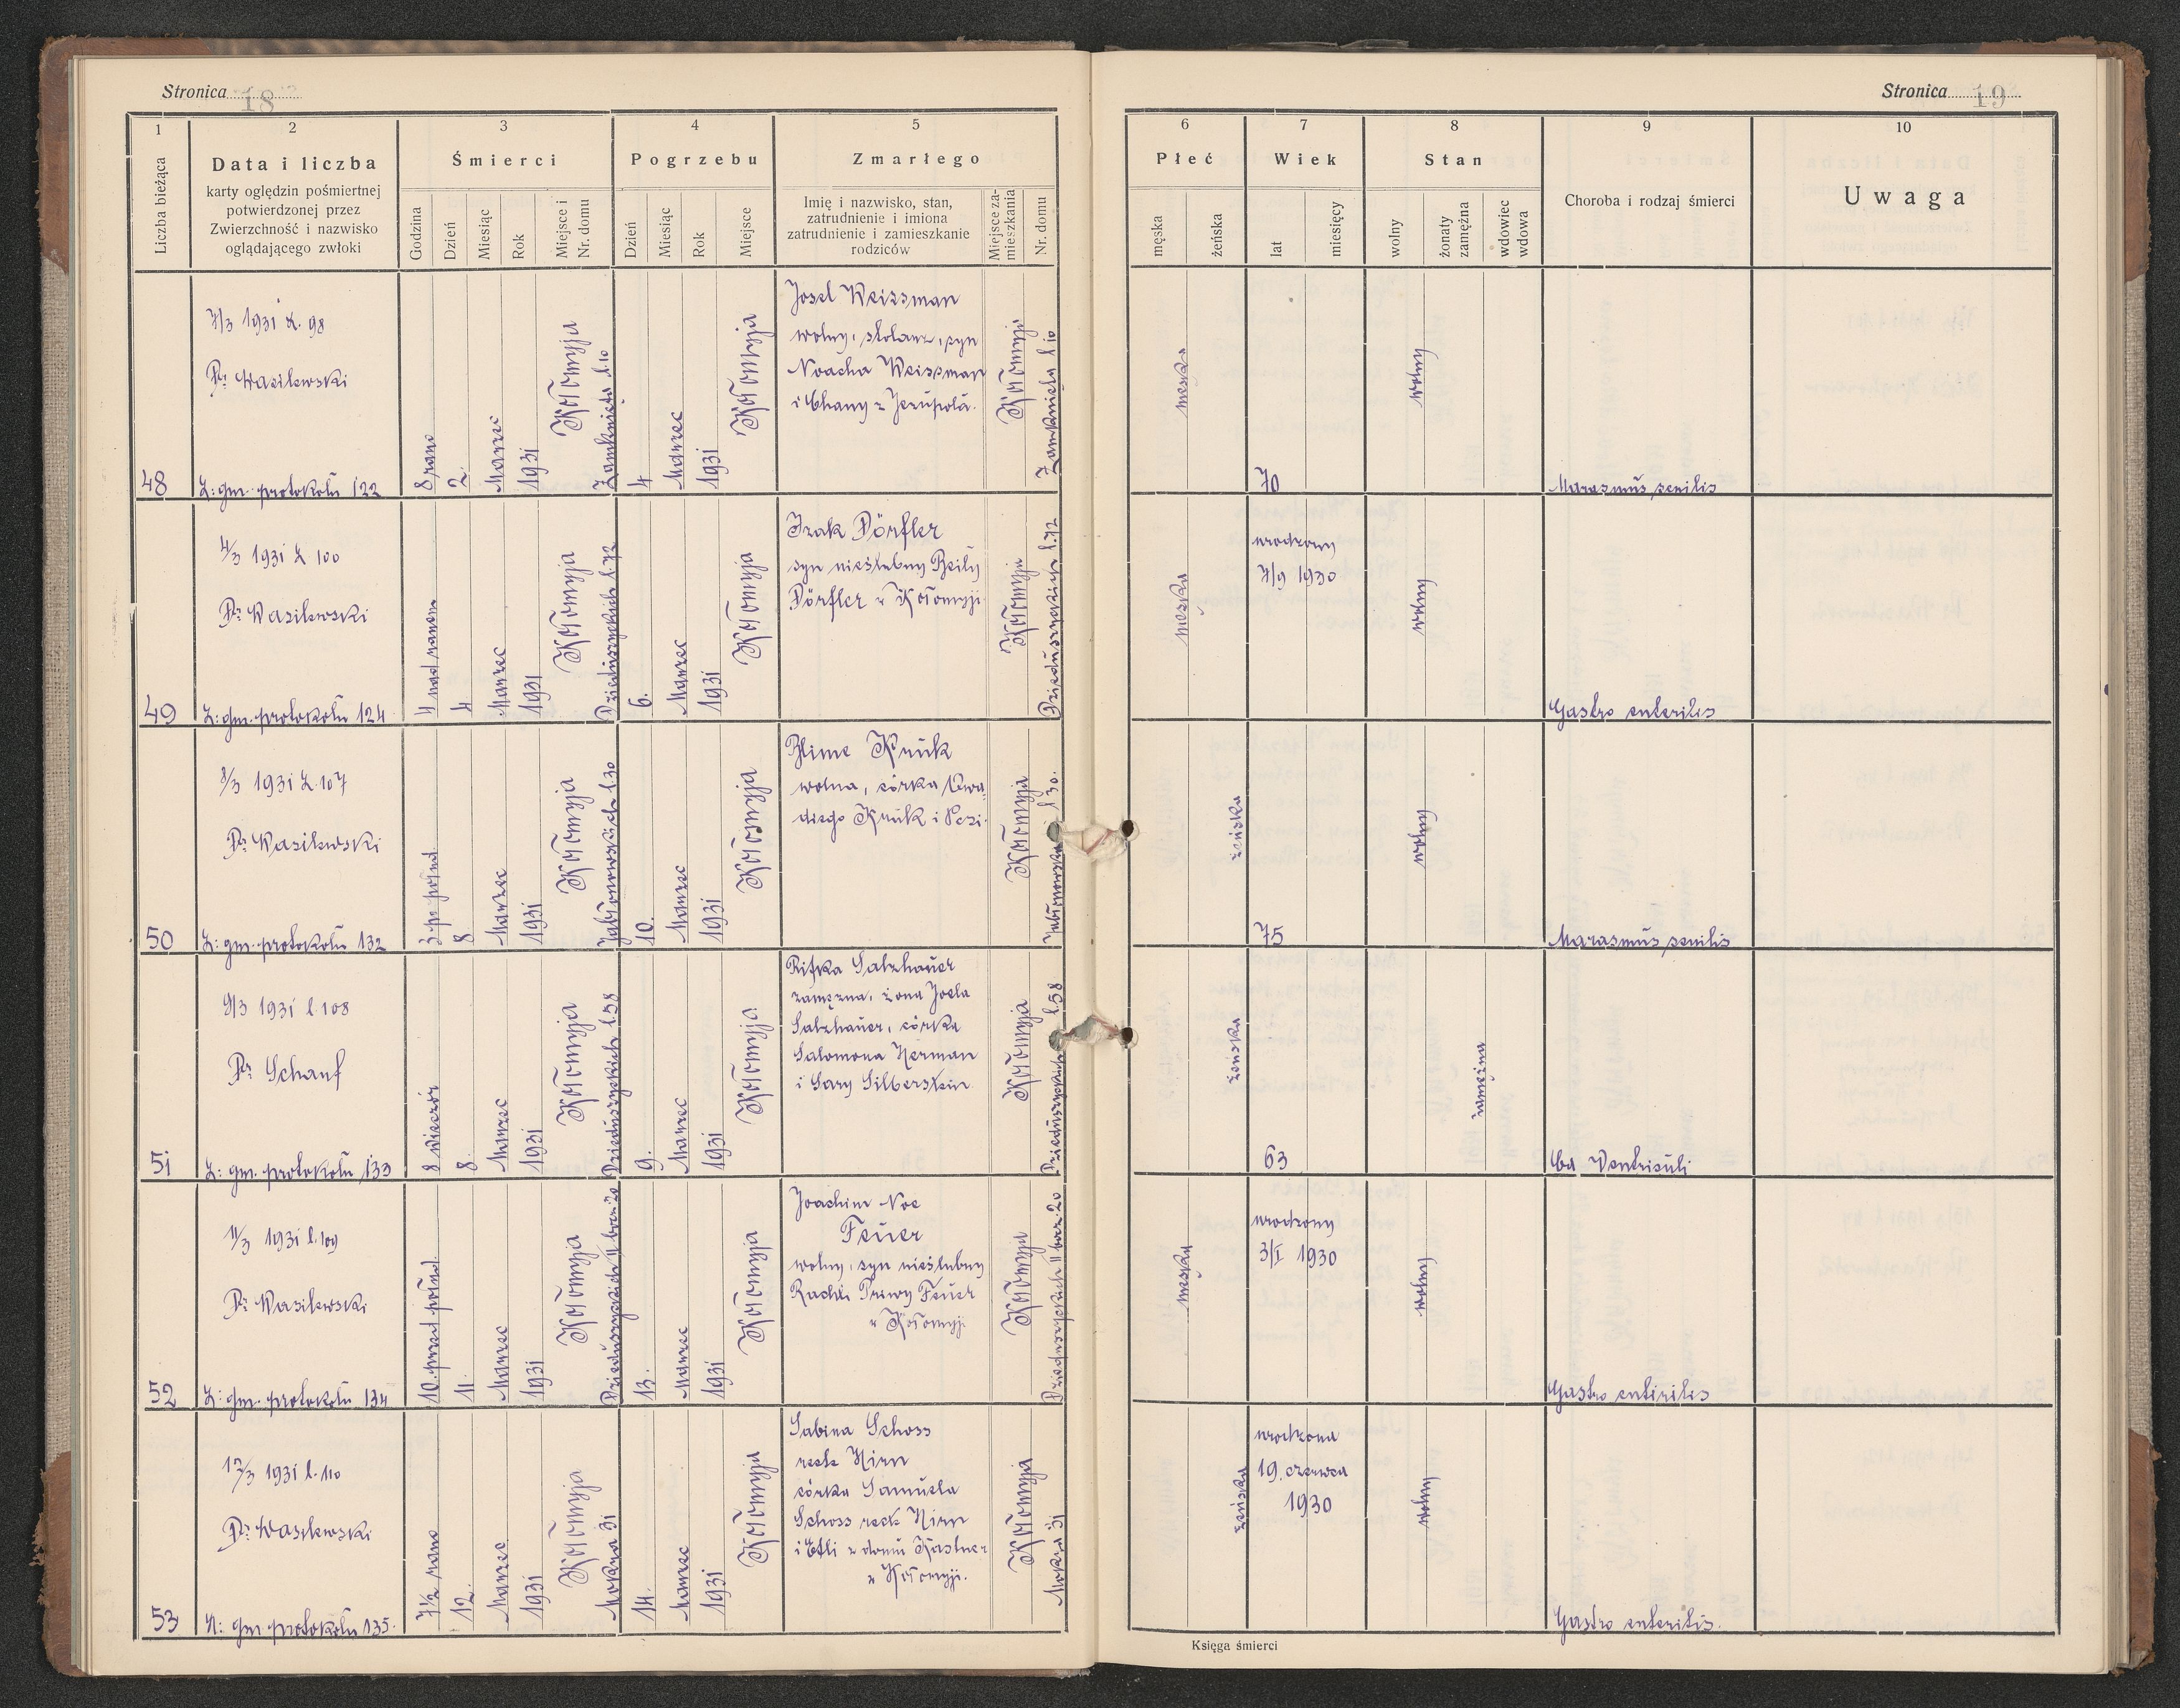 Stronica 18
1
2
3
4
5
Liczba bieżąca
Data i liczba
karty oględzin pośmiertnej
potwierdzonej przez
Zwierzchność i nazwisko
oglądającego zwłoki
Śmierci
Godzina
Dzień
Miesiąc
Rok
Miejsce i
Nr. domu
Pogrzebu
Dzień
Miesiąc
Rok
Miejsce
Zmarłego
Imię i nazwisko, stan,
zatrudnienie i imiona
zatrudnienie i zamieszkanie
rodziców
Miejsce za-
mieszkania
Nr. domu
48
7/3 1931 L. 98
Dr Wasilewski
L: gm. protokołu 122
8 rano
2.
Marzec
1931
Kołomyja
Zamknięta l. 10
4
Marzec
1931
Kołomyja
Josel Weissman
wolny, stolarz, syn
Noacha Weissman
i Chany z Jezupola.
Kołomyji
Zamknięta l 10
49
4/3 1931 L 100
Dr Wasilewski
L: gm. protokołu 124
4 nad ranem
4
Marzec
1931
Kołomyja
Dzieduszyckich l. 72
6.
Marzec
1931
Kołomyja
Izak Dörfler
syn nieślubny Beily
Dörfler z Kołomyji
Kołomyja
Dzieduszyckich l. 72
50
8/3 1931 L. 107
Dr Wasilewski
L: gm. protokołu 132
3 po połud.
8
Marzec
1931
Kołomyja
Jabłonowskich l 30
10.
Marzec
1931
Kołomyja
Blime Kruk
wolna, córka
diego Kruk i Pesi.
Kołomyja
l 30.
51
9/3 1931 l. 108
Dr Scharf
L: gm. protokołu 133
8 wieczór
8.
Marzec
1931
Kołomyja
Dzieduszyckich l. 58
9.
Marzec
1931
Kołomyja
Rifka Salzhauer
zamężna, żona Joela
Salzhauer, córka
Salomona Herman
i Sary Silberstein
Kołomyja
Dzieduszyckich l 58
52
11/3 1931 l. 109
Dr Wasilewski
L: gm. protokołu 134
10. przed połud.
11.
Marzec
1931
Kołomyja
Dzieduszyckich II bocz. 20
13.
Marzec
1931
Kołomyja
Joachim Noe
Feuer
wolny, syn nieślubny
Rachli Priwy Feuer
z Kołomyji
Kołomyja
Dzieduszyckich II bocz. 20
53
12/3 1931 l. 110
Dr Wasilewski
L: gm protokołu 135.
7½ rano
12.
Marzec
1931
Kołomyja
Mokra 31
14.
Marzec
1931
Kołomyja
Sabina Schoss
recte Hirn
córka Samuela
Schoss recte Hirn
i Etli z domu Kastner
z Kołomyji.
Kołomyja
Mokra 31
Stronica 19
6
7
8
9
10
Płeć
męska
żeńska
Wiek
lat
miesięcy
Stan
wolny
żonaty
zamężna
wdowiec
wdowa
Choroba i rodzaj śmierci
Uwaga
męska
70
wolny
Marasmus senilis
męska
urodzony
7/9 1930
wolny
Gastro enteritis
żeńska
75
wolny
Marasmus senilis
żeńska
63
zamężna
Ca Ventriculi
męska
urodzony
3/I 1930
wolny
Gastro entiritis
żeńska
urodzona
19. czerwca
1930
wolny
Gastro enteritis.
Księga śmierci